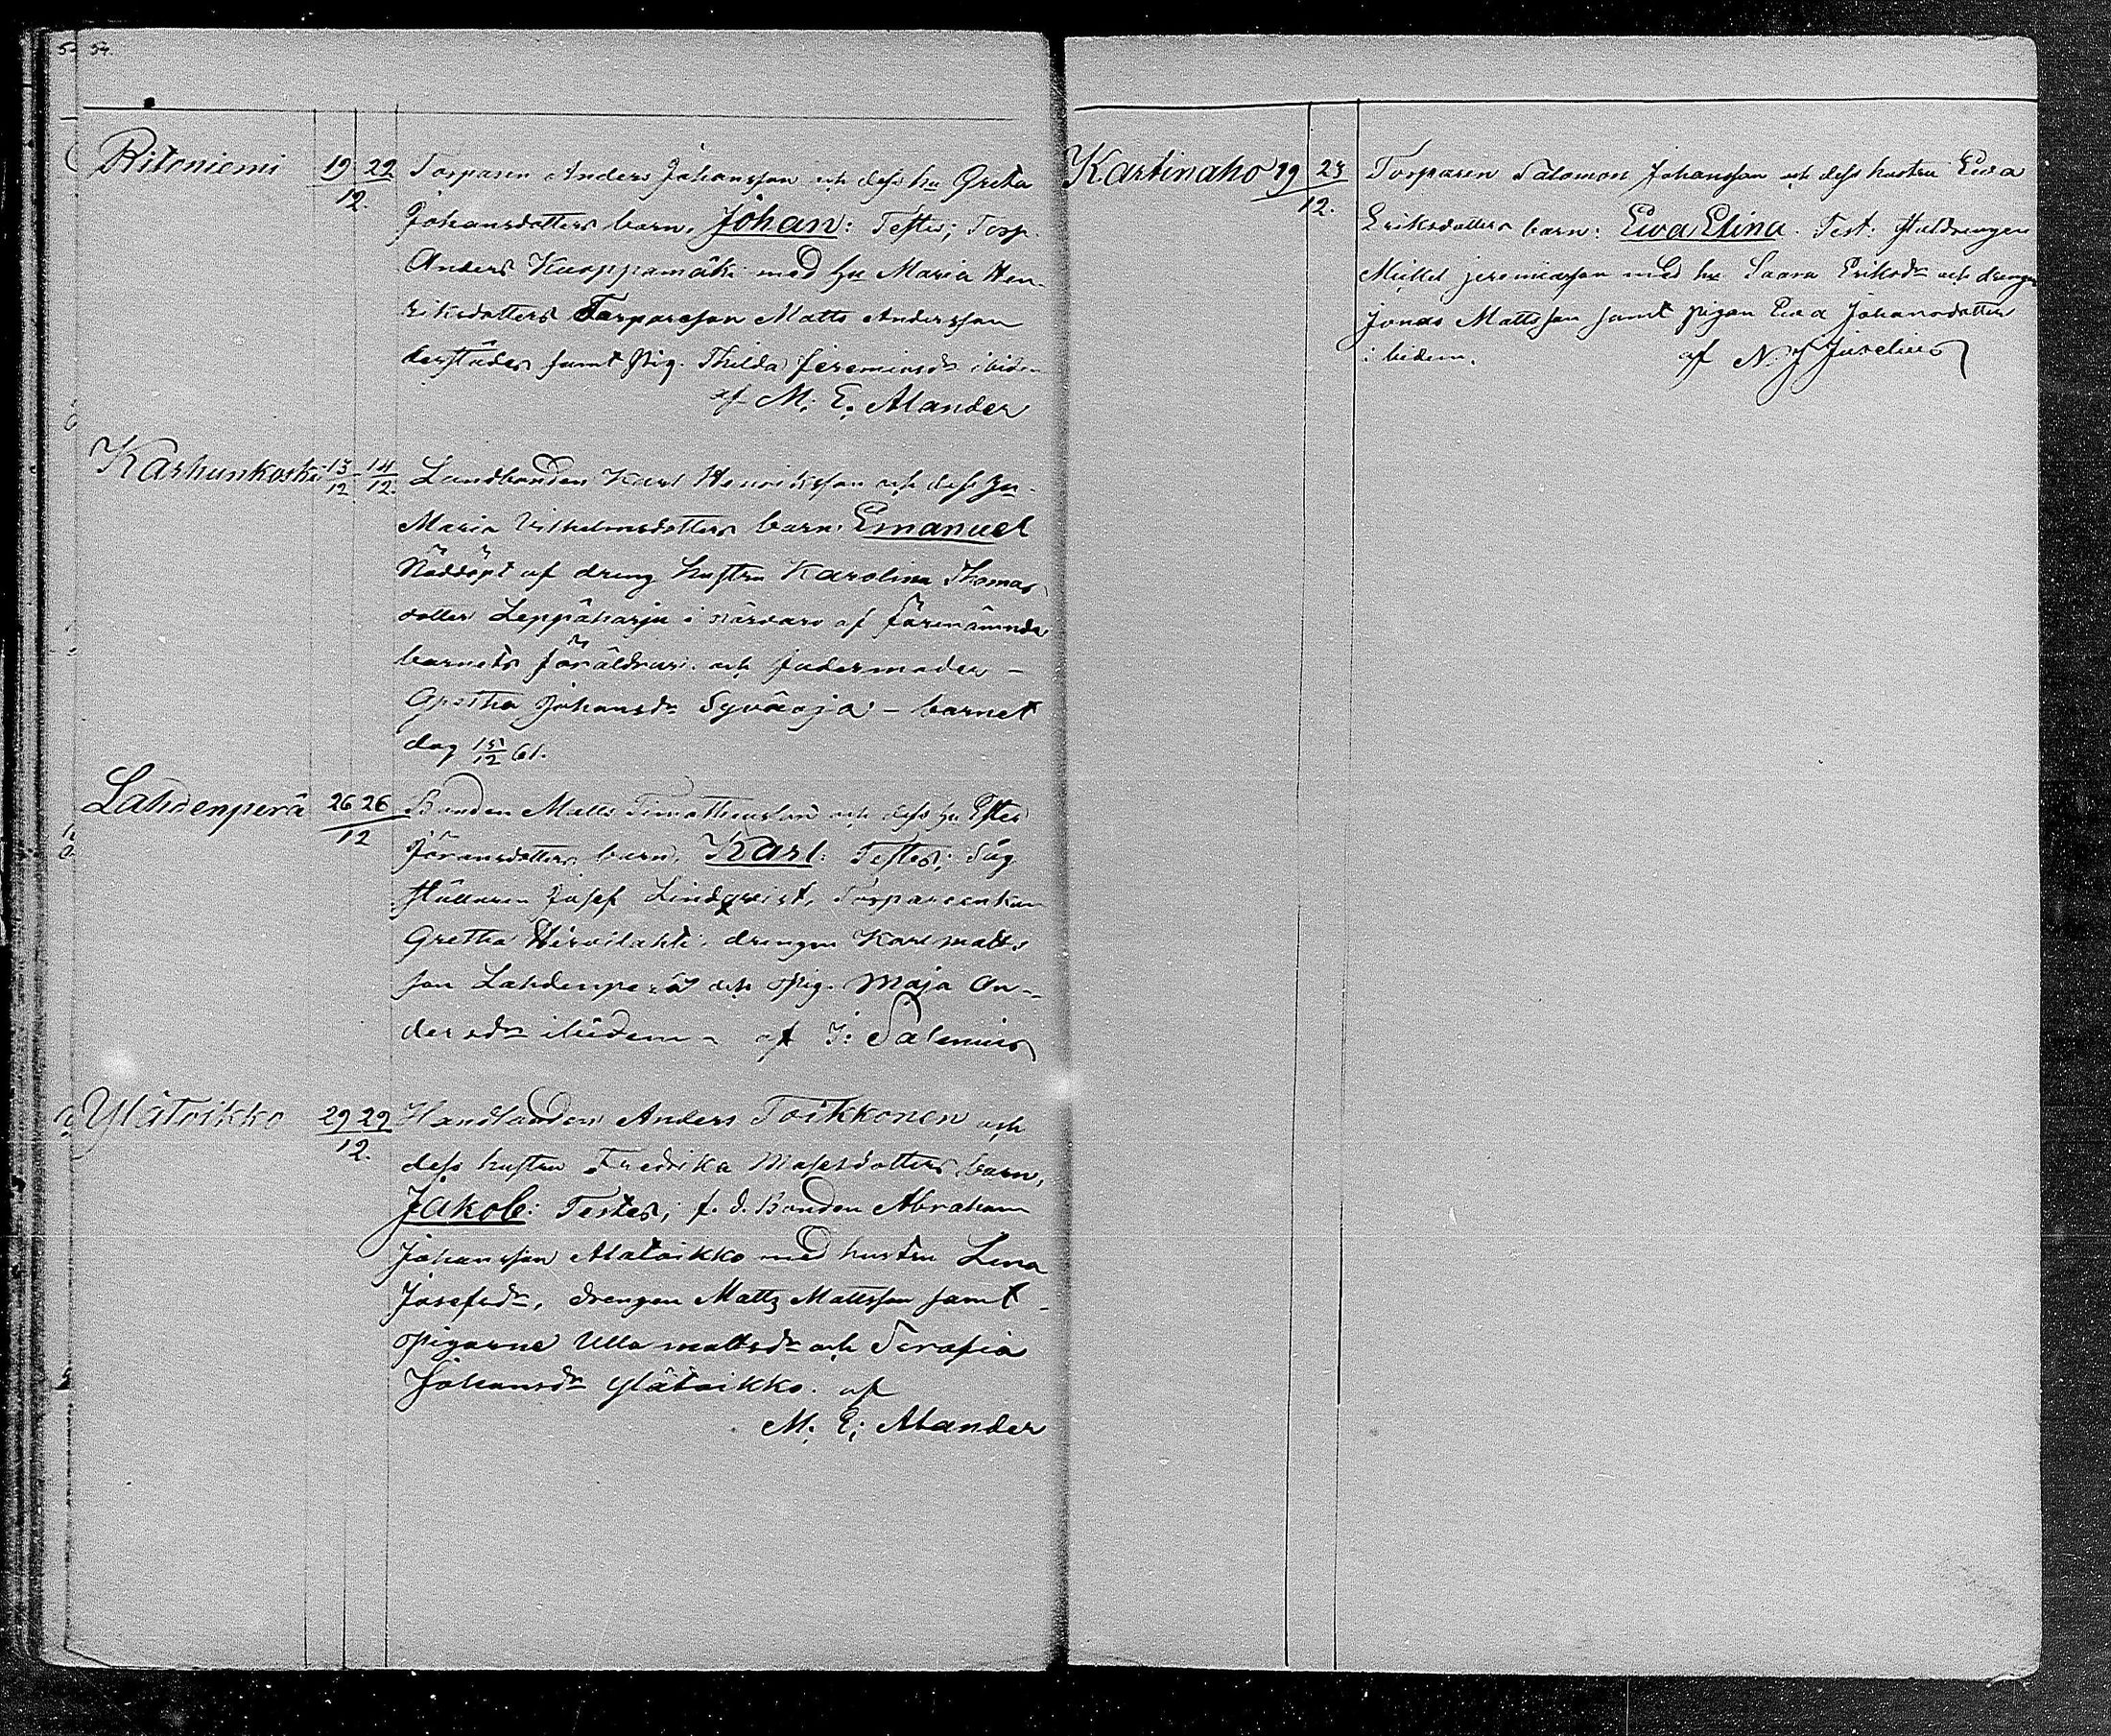 54.
Ritoniemi 19 22 Torparen Anders Johansson och dess hu Greta
12. Johansdotters barn, Johan: Testes; Torp.
Anders Kuoppamäki med hu Maria Hen-
riksdotters Torpareson Matts Andersson
derstädes samt pig. Thilda Jeremiasdr ibidem
af M. E. Alander
Karhunkoski 13/12 14/12. Landbonden Karl Henriksson och dess hu
Maria Vilhelmsdotters barn: Emanuel
Nöddöpt af dreng hustru Karolina Thomas
dotter Leppäharju i närvaro af förenämnda
barnets föräldrar och fadermoder –
Gretha Johansdr Syväoja – barnet
dog 15/12 61.
Lahdenperä 26 26 Bonden Matts Timotheusson och dess hu Ester
12 Göransdotters barn, Karl: Testes; Såg
ställaren Josef Lindqvist, Torpareenkan
Gretha Hirvilahti, drengen Karl Matts
son Lahdenperä och pig. Maja An-
dersdr ibidem – af J: Salenius
Ylätoikko 29 29 Handlanden Anders Toikkonen och
12. dess hustru Fredrika Mosesdotters barn,
Jakob: Testes; f. d. Bonden Abraham
Johansson Alatoikko med hustru Lena
Josefsdr, drengen Matts Mattsson samt
pigorne Ulla Mattsdr och Serafia
Johansdr Ylätoikko. af
M. E; Alander
Kartinaho 19 23 Torparen Salomon Johansson och dess hustru Ewa
12. Eriksdotters barn: Ewa Elina. Test: Stalldrengen
Mickel Jeremiasson med hu Saara Eriksdr och drengen
Jonas Mattsson samt pigan Ewa Johansdotter
ibidem. af N J Juselius